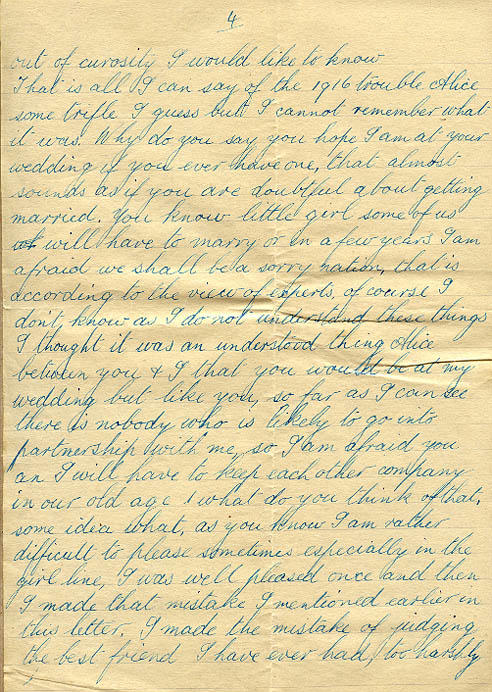 4
out of curosity I would like to know
That is all I can say of the 1916 trouble Alice
some trifle I guess but I cannot remember what
it was. Why do you say you hope I am at your
wedding if you ever have one, that almost
sounds as if you are doubtful about getting
married. You know little girl some of us
will have to marry or in a few years I am
afraid we shall be a sorry nation, that is
according to the view of experts, of course I
don't know as I do not understand these things
I thought it was an understood thing Alice
between you & I that you would be at my
wedding but like you, so far as I can see
there is nobody who is likely to go into
partnership with me, so I am afraid you
an I will have to keep each other company
in our old age! what do you think of that,
some idea what, as you know I am rather
difficult to please sometimes especially in the
girl line, I was well pleased once and then
I made that mistake I mentioned earlier in
this letter. I made the mistake of judging
the best friend I have ever had, too harshly